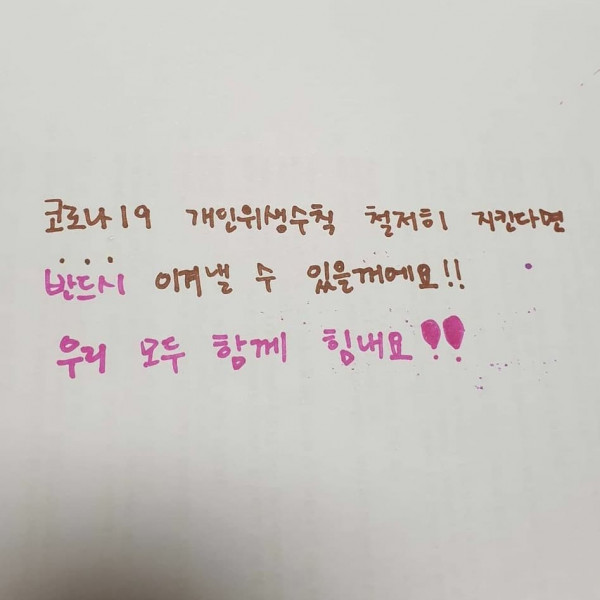 코로나19 개인위생수칙 철저히 지킨다면
반드시 이겨낼 수 있을꺼에요!!
우리 모두 함께 힘내요!!